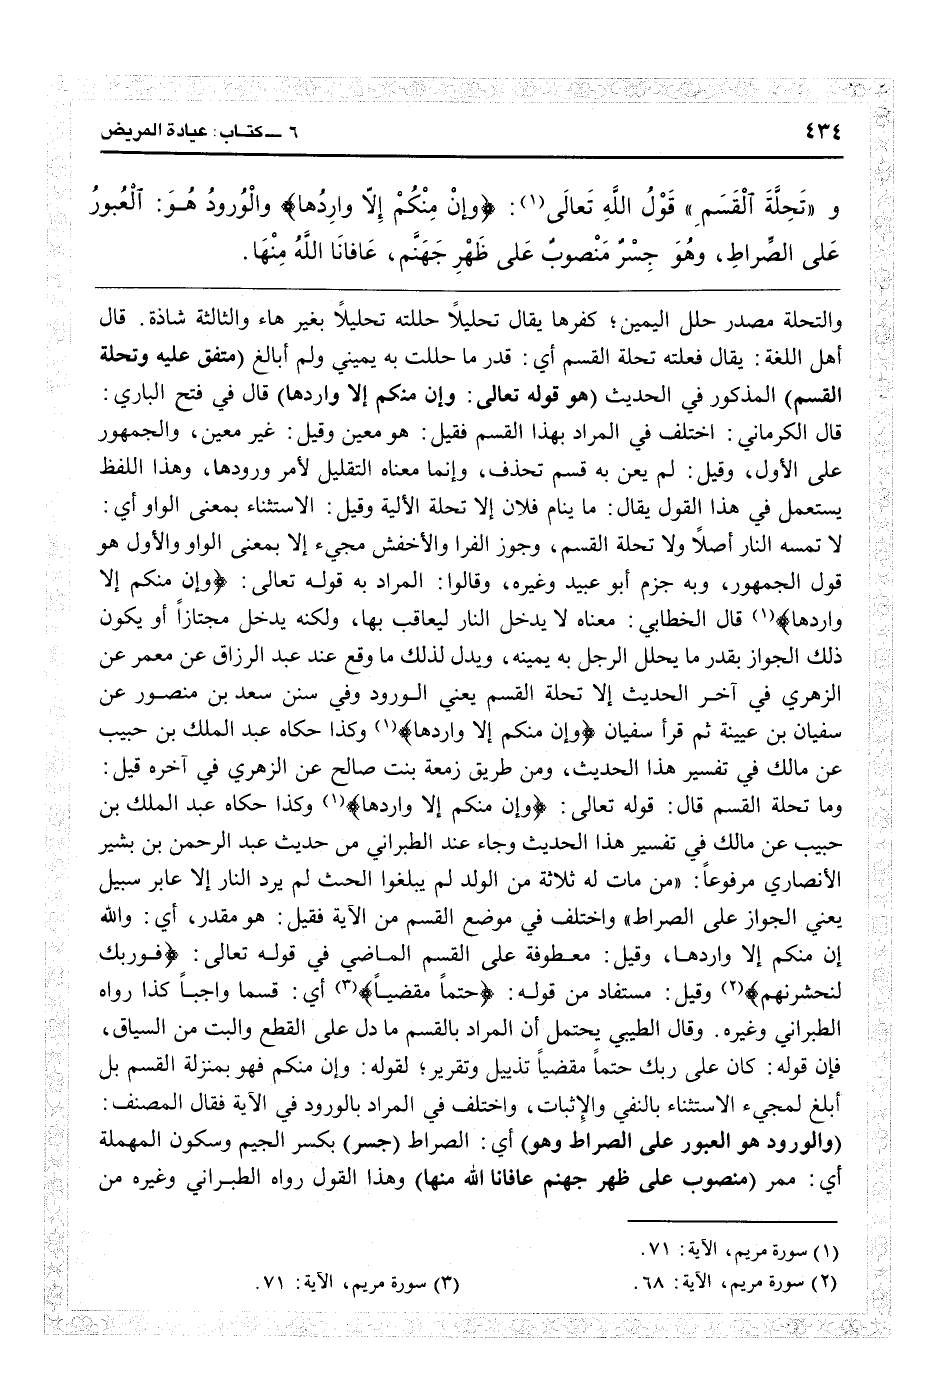 ٤٣٤
٦ ــ كتاب: عيادة المريض
و «تَحِلَّةَ ٱلْقَسَمِ» قَوْلُ اللَّهِ تَعالَى(١): ﴿وإنْ مِنْكُمْ إِلَّا وارِدُها﴾ والْوُرودُ هُـوَ: ٱلْعُبورُ
عَلى الصِّراطِ، وهُوَ جِسْرٌ مَنْصوبٌ عَلى ظَهْرِ جَهَنَّم، عَافانَا اللَّهُ مِنْهَا.
والتحلة مصدر حلل اليمين؛ كفرها يقال تحليلاً حللته تحليلاً بغير هاء والثالثة شاذة. قال
أهل اللغة: يقال فعلته تحلة القسم أي: قدر ما حللت به يميني ولم أبالغ (متفق عليه وتحلة
القسم) المذكور في الحديث (هو قوله تعالى: وإن منكم إلا واردها) قال في فتح الباري:
قال الكرماني: اختلف في المراد بهذا القسم فقيل: هو معين وقيل: غير معين، والجمهور
على الأول، وقيل: لم يعن به قسم تحذف، وإنما معناه التقليل لأمر ورودها، وهذا اللفظ
يستعمل في هذا القول يقال: ما ينام فلان إلا تحلة الألية وقيل: الاستثناء بمعنى الواو أي:
لا تمسه النار أصلاً ولا تحلة القسم، وجوز الفرا والأخفش مجيء إلا بمعنى الواو والأول هو
قول الجمهور، وبه جزم أبو عبيد وغيره، وقالوا: المراد به قولـه تعالى: ﴿وإن منكم إلا
واردها﴾(١) قال الخطابي: معناه لا يدخل النار ليعاقب بها، ولكنه يدخل مجتازاً أو يكون
ذلك الجواز بقدر ما يحلل الرجل به يمينه، ويدل لذلك ما وقع عند عبد الرزاق عن معمر عن
الزهري في آخـر الحديث إلا تحلة القسم يعني الـورود وفي سنن سعد بن منصـور عن
سفيان بن عيينة ثم قرأ سفيان ﴿وإن منكم إلا واردها﴾(١) وكذا حكاه عبد الملك بن حبيب
عن مالك في تفسير هذا الحديث، ومن طريق زمعة بنت صالح عن الزهري في آخره قيل:
وما تحلة القسم قال: قوله تعالى: ﴿وإن منكم إلا واردها﴾(١) وكذا حكاه عبد الملك بن
حبيب عن مالك في تفسير هذا الحديث وجاء عند الطبراني من حديث عبد الرحمن بن بشير
الأنصاري مرفوعاً: «من مات له ثلاثة من الولد لم يبلغوا الحنث لم يرد النار إلا عابر سبيل
يعني الجواز على الصراط» واختلف في موضع القسم من الآية فقيل: هو مقدر، أي: والله
إن منكم إلا واردهـا، وقيل: معـطوفة على القسم المـاضي في قولـه تعالى: ﴿فـوربك
لنحشرنهم﴾(٢) وقيل: مستفاد من قولـه: ﴿حتماً مقضيـاً﴾(٣) أي: قسما واجبـاً كذا رواه
الطبراني وغيره. وقال الطيبي يحتمل أن المراد بالقسم ما دل على القطع والبت من السياق،
فإن قوله: كان على ربك حتماً مقضياً تذييل وتقرير؛ لقوله: وإن منكم فهو بمنزلة القسم بل
أبلغ لمجيء الاستثناء بالنفي والإثبات، واختلف في المراد بالورود في الآية فقال المصنف:
(والورود هو العبور على الصراط وهو) أي: الصراط (جسر) بكسر الجيم وسكون المهملة
أي: ممر (منصوب على ظهر جهنم عافانا الله منها) وهذا القول رواه الطبـراني وغيره من
(١) سورة مريم، الآية: ٧١.
(٢) سورة مريم، الآية: ٦٨.
(٣) سورة مريم، الآية: ٧١.